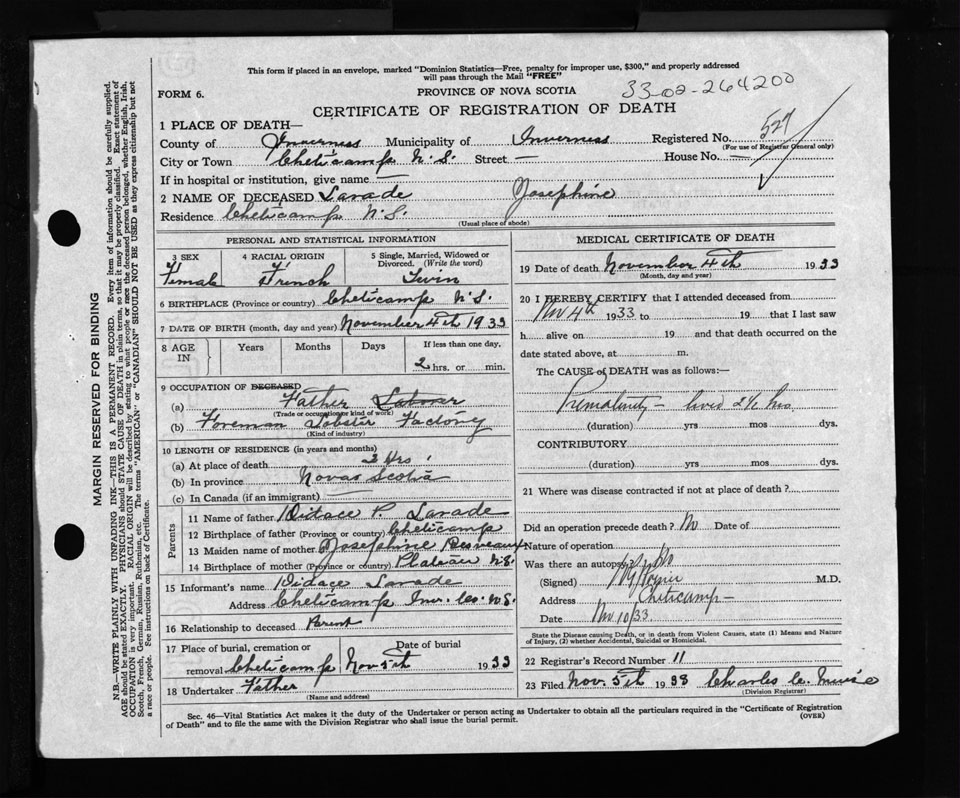 This form if placed in an envelope, marked "Dominion Statistics—Free, penalty for improper use, $300," and properly addressed
will pass through the Mail "FREE"
FORM 6.
PROVINCE OF NOVA SCOTIA
33-02-264200
CERTIFICATE OF REGISTRATION OF DEATH
1 PLACE OF DEATH—
County of Inverness Municipality of Inverness Registered No. 527
(For use of Registrar General only)
City or Town Cheticamp N.S. Street — House No. —
If in hospital or institution, give name —
2 NAME OF DECEASED Larade Josephine
Residence Cheticamp N.S.
(Usual place of abode)
PERSONAL AND STATISTICAL INFORMATION
3 SEX 4 RACIAL ORIGIN 5 Single, Married, Widowed or
Divorced. (Write the word)
Female French Twin
6 BIRTHPLACE (Province or country) Cheticamp N.S.
7 DATE OF BIRTH (month, day and year) November 4th 1933
8 AGE IN Years Months Days If less than one day.
2 hrs. or min.
9 OCCUPATION OF DECEASED
(a) Father Laborer
(Trade or occupation or kind of work)
(b) Foreman Lobster Factory
(Kind of industry)
10 LENGTH OF RESIDENCE (in years and months)
(a) At place of death 2 Hrs.
(b) In province Novas Scotia
(c) In Canada (if an immigrant)
Parents
11 Name of father Ditace P. Larade
12 Birthplace of father (Province or country) Cheticamp
13 Maiden name of mother Josephine
14 Birthplace of mother (Province or country) Plateau N.S.
15 Informant's name Didace Larade
Address Cheticamp Inv. Co. N.S.
16 Relationship to deceased Parent
17 Place of burial, cremation or Date of burial
removal Cheticamp Nov 5th 1933
18 Undertaker Father
(Name and address)
MEDICAL CERTIFICATE OF DEATH
19 Date of death November 4th 1933
(Month, day and year)
20 I HEREBY CERTIFY that I attended deceased from
Nov 4th 1933 to 19 that I last saw
h alive on 19 and that death occurred on the
date stated above, at m.
The CAUSE of DEATH was as follows:—
Prematurity — lived 2½ hrs
(duration) yrs mos dys.
CONTRIBUTORY
(duration) yrs mos dys.
21 Where was disease contracted if not at place of death?
Did an operation precede death? No Date of
Nature of operation
Was there an autopsy? No
(Signed) M.D.
Address Cheticamp —
Date Nov 10/33
State the Disease causing Death, or in death from Violent Causes, state (1) Means and Nature
of Injury, (2) whether Accidental, Suicidal or Homicidal.
22 Registrar's Record Number 11
23 Filed Nov. 5th 1938 Charles
(Division Registrar)
Sec. 46—Vital Statistics Act makes it the duty of the Undertaker or person acting as Undertaker to obtain all the particulars required in the "Certificate of Registration
of Death" and to file the same with the Division Registrar who shall issue the burial permit.
(OVER)
MARGIN RESERVED FOR BINDING
N.B.—WRITE PLAINLY WITH UNFADING INK—THIS IS A PERMANENT RECORD. Every item of information should be carefully supplied.
AGE should be stated EXACTLY. PHYSICIANS should STATE CAUSE OF DEATH in plain terms, so that it may be properly classified. Exact statement of
OCCUPATION is very important. RACIAL ORIGIN will be described by stating to what people or race the deceased person belonged, whether English, Irish,
Scotch, French, German, Russian, Ruthenian, etc. The terms "AMERICAN" or "CANADIAN" SHOULD NOT BE USED as they express citizenship but not
a race or people. See instructions on back of Certificate.